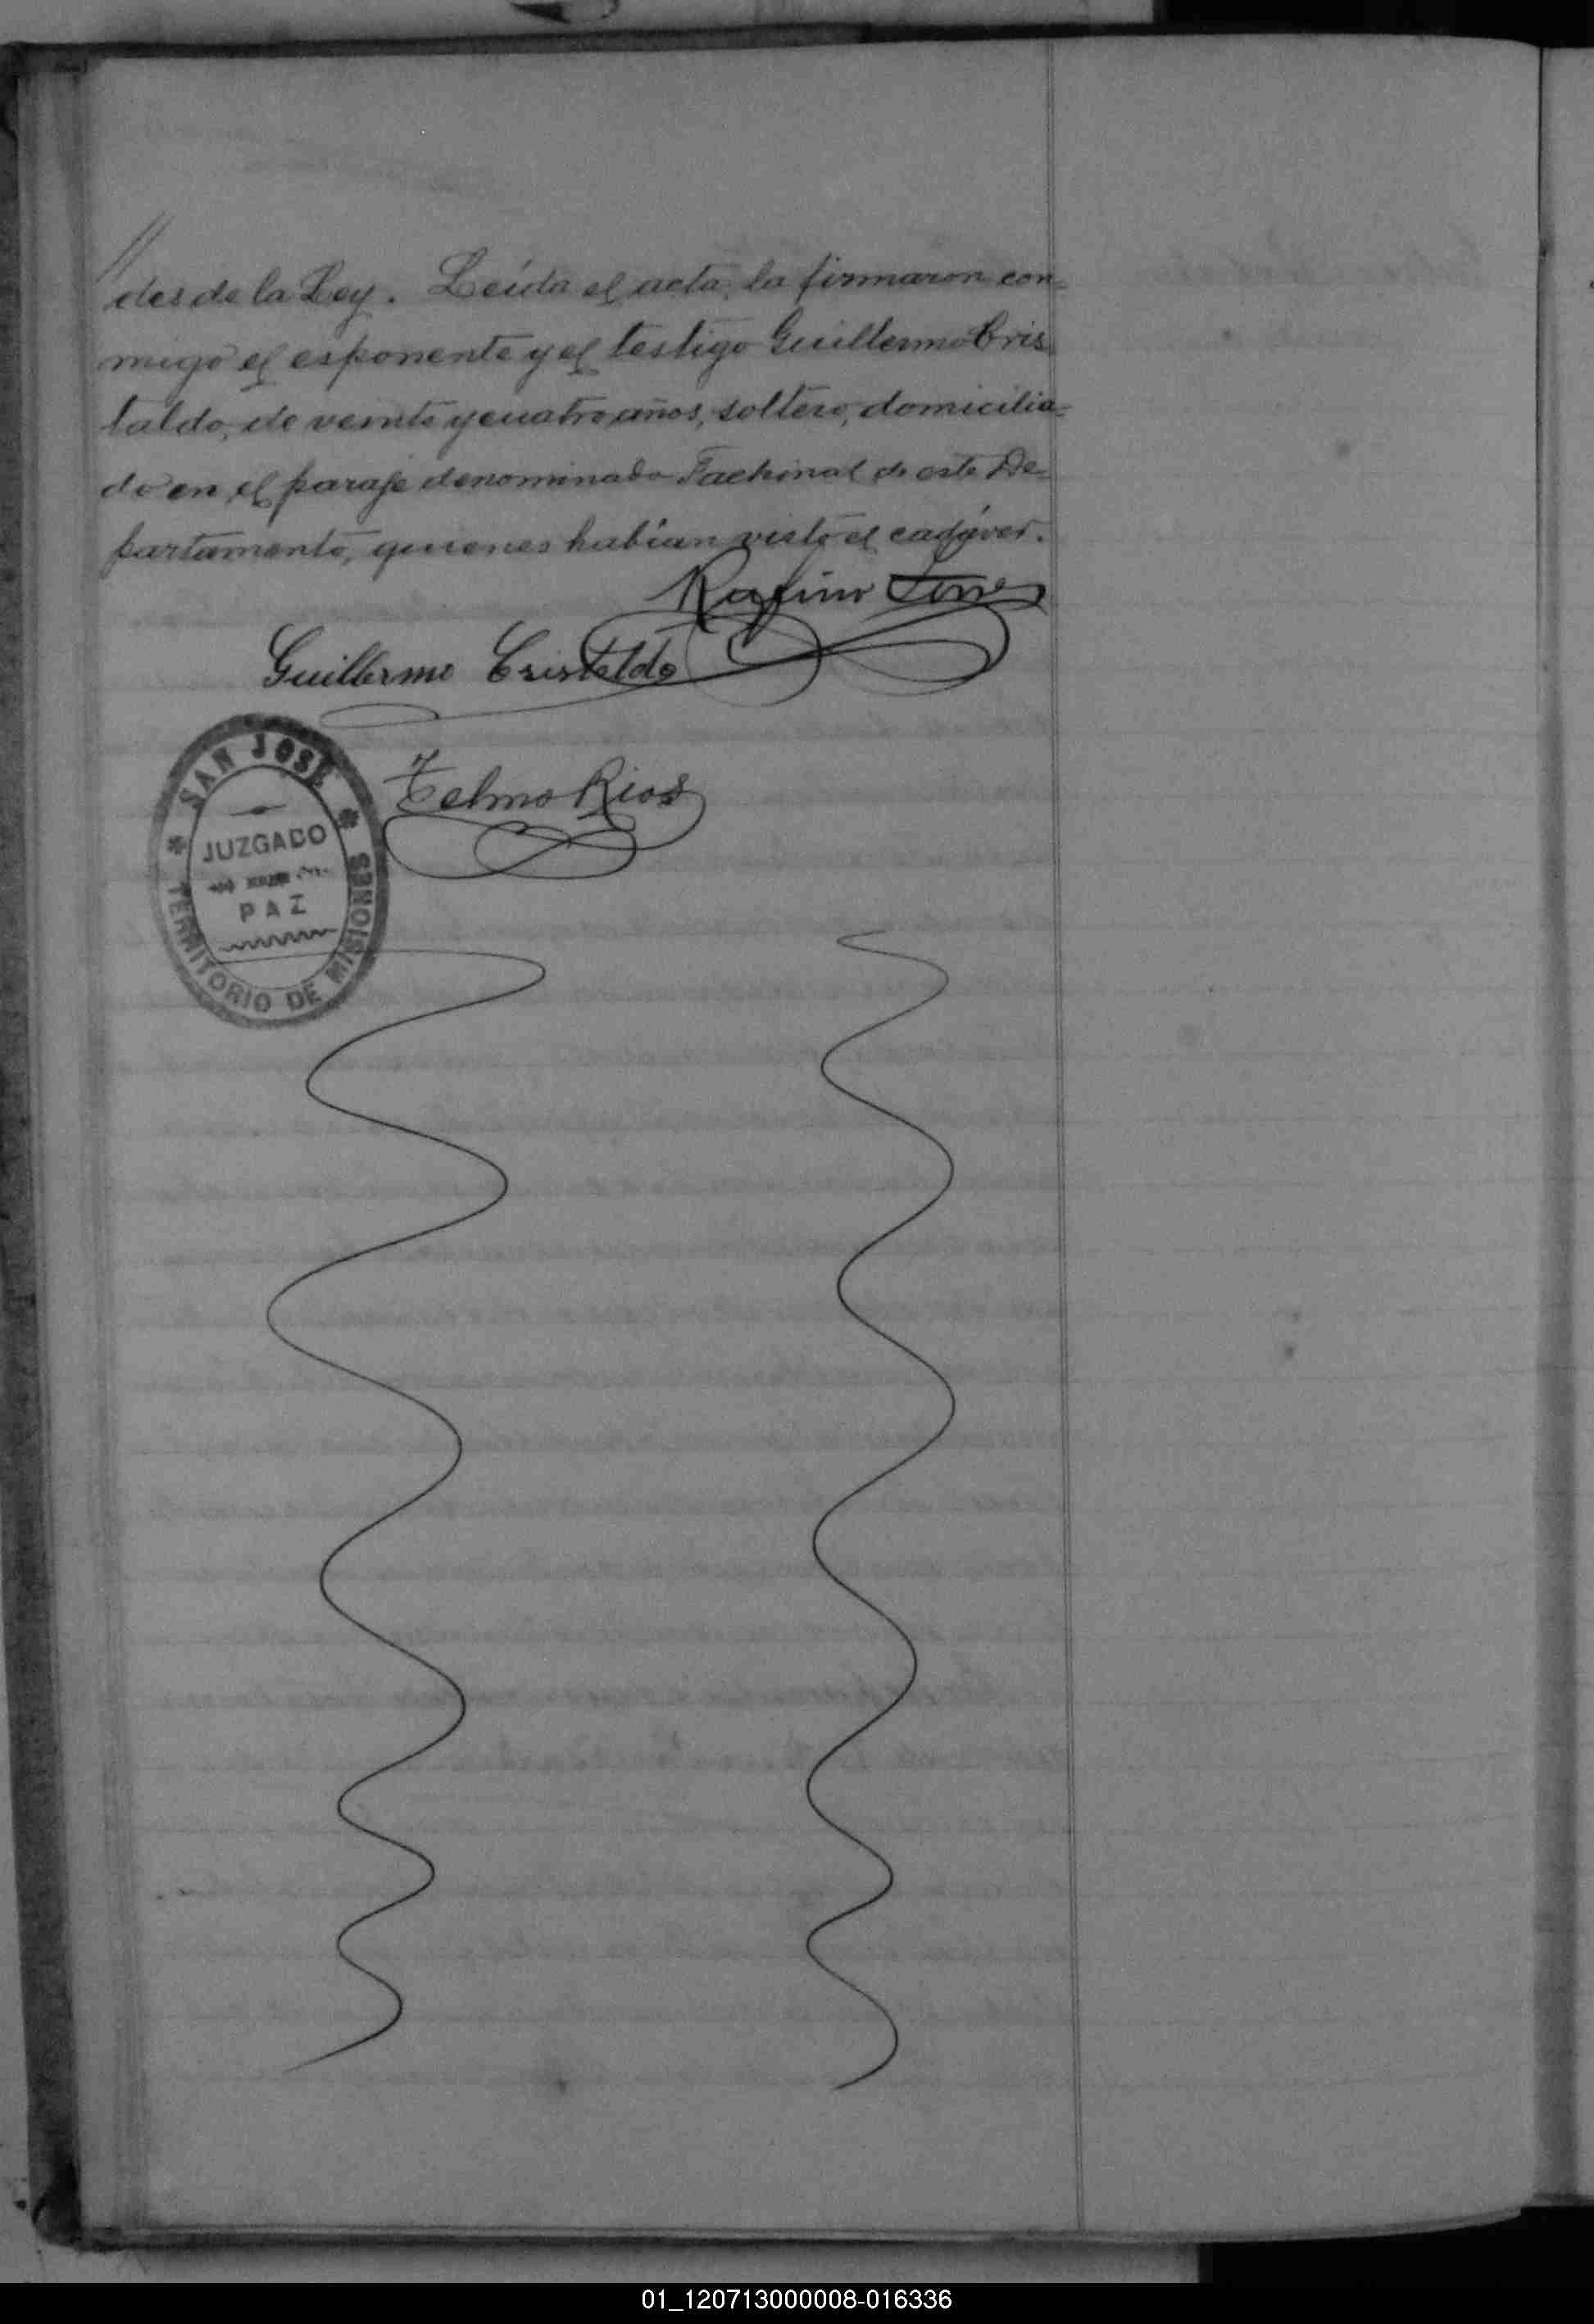 // des de la Ley. Leída el acta, la firmaron con-
migo el esponente y el testigo Guillermo Cris
taldo, de veinte y cuatro años, soltero, domicilia-
do en el paraje denominado Fachinal de este De-
partamento, quienes habían visto el cadáver.
Rufino Torres
Guillermo Cristaldo
Telmo Rios
SAN JOSÉ
JUZGADO
PAZ
TERRITORIO DE MISIONES
01_120713000008-016336